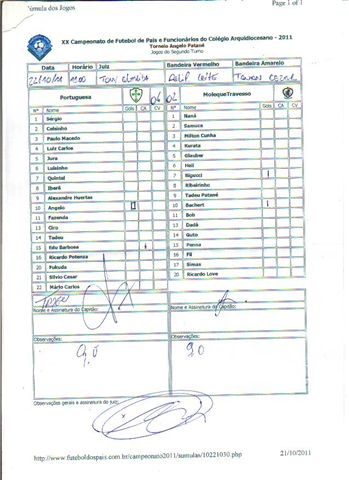 Súmula dos Jogos Page 1 of 1
XX Campeonato de Futebol de Pais e Funcionários do Colégio Arquidiocesano - 2011
Torneio Angelo Patané
Jogos do Segundo Turno
Data Horário Juiz Bandeira Vermelho Bandeira Amarelo
22/10/11
Portuguesa 04 02 MolequeTravesso
Nº Nome Gols CA CV Nº Nome Gols CA CV
1 Sérgio 1 Naná
2 Celsinho 2 Samuca
3 Paulo Macedo 3 Milton Cunha
4 Luiz Carlos 4 Kurata
5 Jura 5 Glauber
6 Luisinho 6 Neil
7 Quintal 7 Rigucci
8 Iberê 8 Ribeirinho
9 Alexandre Huertas 9 Tadeu Patané
10 Angelo 10 Bachert
11 Fazenda 11 Bob
13 Ciro 13 Dadá
14 Tadeu 14 Guto
15 Edu Barbosa 15 Penna
16 Ricardo Potenza 16 Fil
20 Fukuda 17 Simas
21 Silvio Cesar 20 Ricardo Love
22 Mário Carlos
Nome e Assinatura do Capitão: Nome e Assinatura do Capitão:
Observações: Observações:
Observações gerais e assinatura do juiz:
http://www.futeboldospais.com.br/campeonato2011/sumulas/10221030.php 21/10/2011